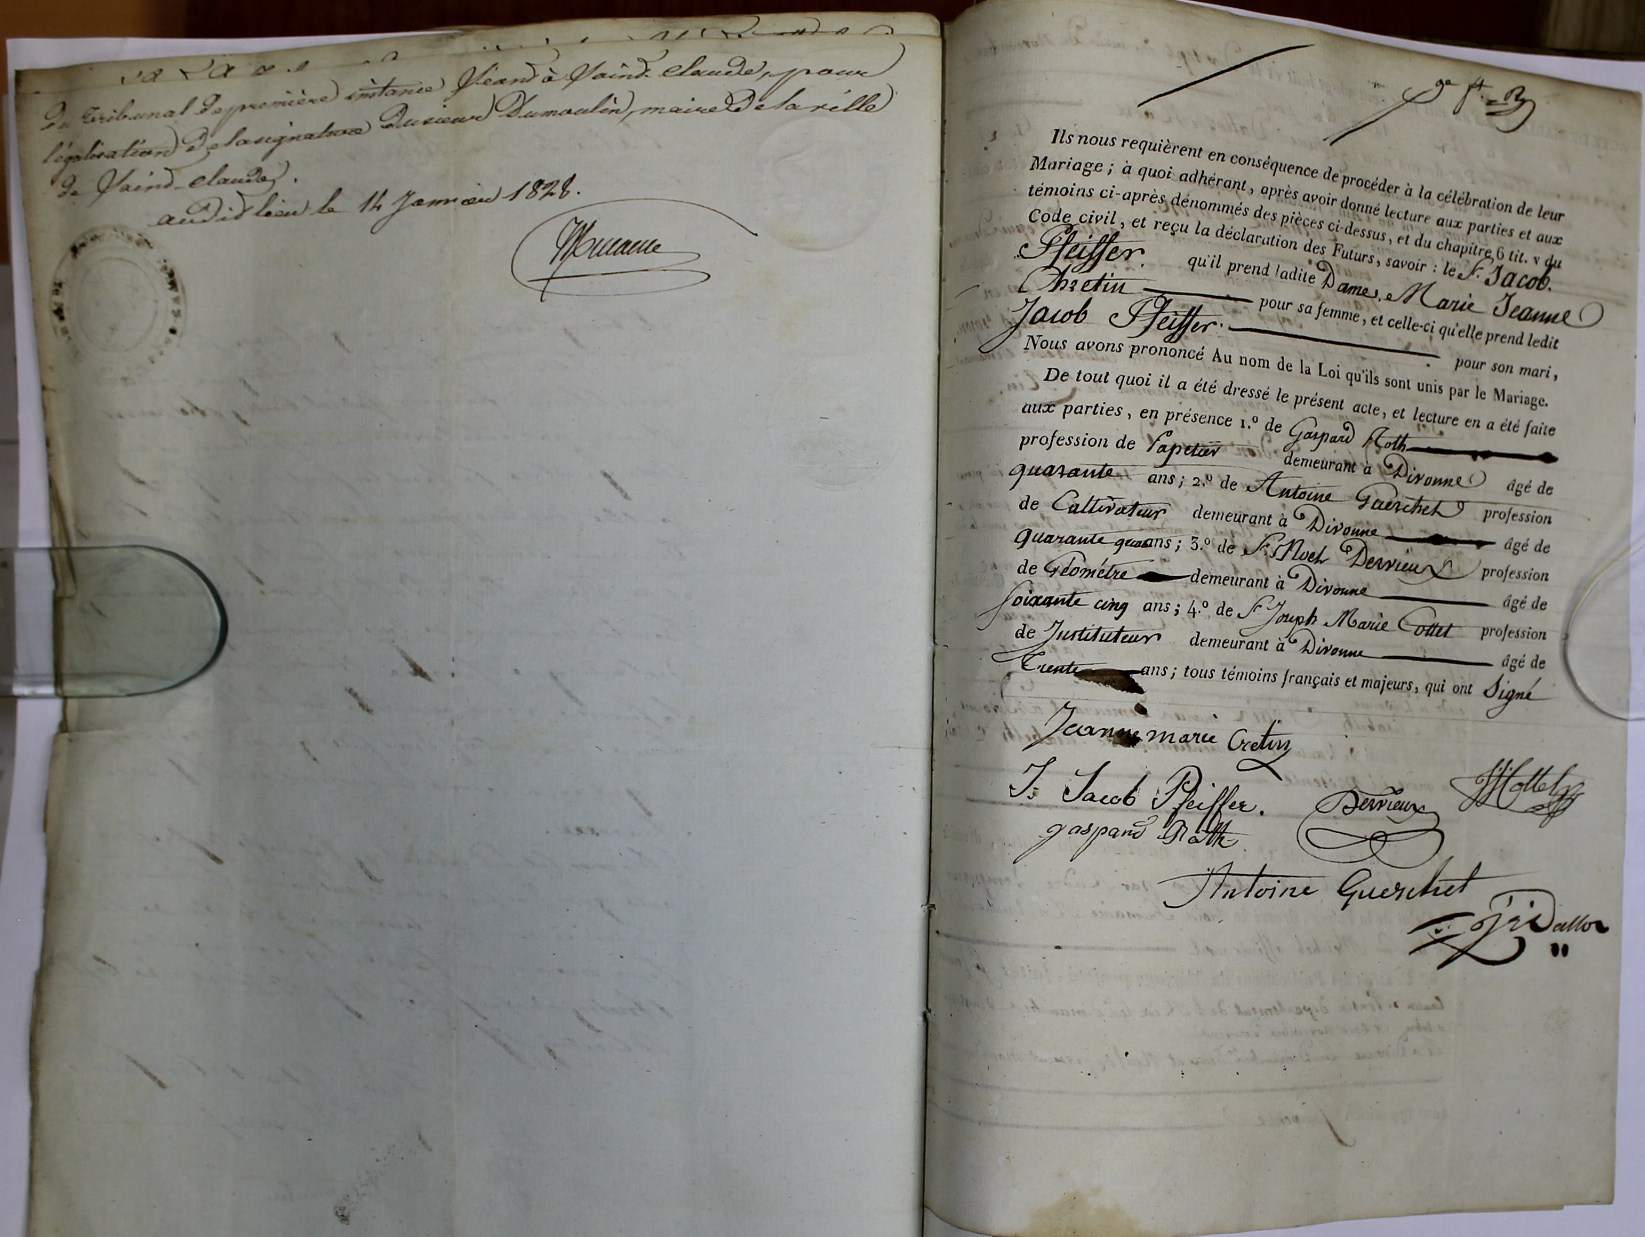 du Tribunal de première instance séant à Saint-Claude, pour
légalisation de la signature du sieur Dumoulin, maire de la ville
de Saint-Claude.
audit lieu le 14 Janvier 1828.
Ils nous requièrent en conséquence de procéder à la célébration de leur
Mariage; à quoi adhérant, après avoir donné lecture aux parties et aux
témoins ci-après dénommés des pièces ci-dessus, et du chapitre 6 tit. v du
Code civil, et reçu la déclaration des Futurs, savoir : le Sr. Jacob
Pfeiffer. qu'il prend ladite Dame, Marie Jeanne
Chretin pour sa femme, et celle-ci qu'elle prend ledit
Jacob Pfeiffer. pour son mari,
Nous avons prononcé Au nom de la Loi qu'ils sont unis par le Mariage.
De tout quoi il a été dressé le présent acte, et lecture en a été faite
aux parties, en présence 1.º de Gaspard Roth
profession de Papetier demeurant à Divonne âgé de
quarante ans; 2.º de Antoine Guerchet profession
de Cultivateur demeurant à Divonne âgé de
quarante quatre ans; 3.º de Sr. Noel Derrieux profession
de Géométre demeurant à Divonne âgé de
soixante cinq ans; 4.º de Sr Joseph Marie Cottet profession
de Instituteur demeurant à Divonne âgé de
trente ans; tous témoins français et majeurs, qui ont Signé
Jeanne marie Cretin
J. Jacob Pfeiffer. Derrieux JMCottet
gaspard Roth
Antoine Guerchet